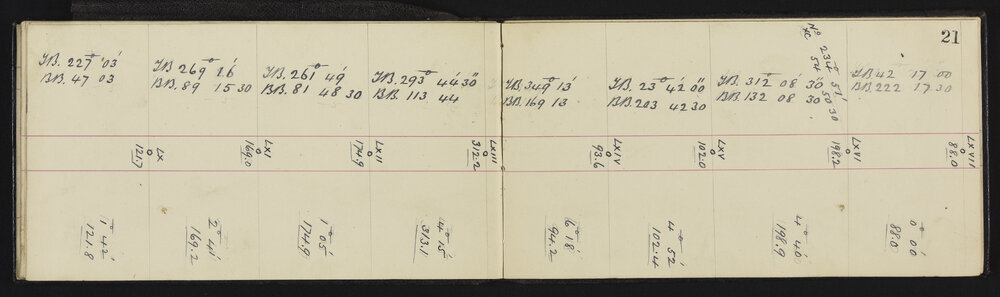 21
F.B. 227° 03'
B.B. 47 03
F.B 269° 16'
B.B. 89 15 30
F.B. 261° 49'
B.B. 81 48 30
F.B. 293° 44' 30"
B.B. 113 44
F.B. 349° 13'
B.B. 169 13
F.B. 23° 42' 00"
B.B. 203 42 30
F.B. 312° 08' 30"
B.B. 132 08 30
No
234° 51'
54 50 30
F.B 42° 17 00
B.B. 222 17 30
LX
0
121.7
LXI
0
169.0
LXII
0
174.9
LXIII
0
312.2
LXIV
0
93.6
LXV
0
102.0
LXVI
0
198.2
LXVII
0
88.0
1° 42'
121.8
2° 41'
169.2
1° 05'
174.9
4° 15'
313.1
6° 18'
94.2
4° 52'
102.4
4° 40'
198.9
0° 00'
88.0